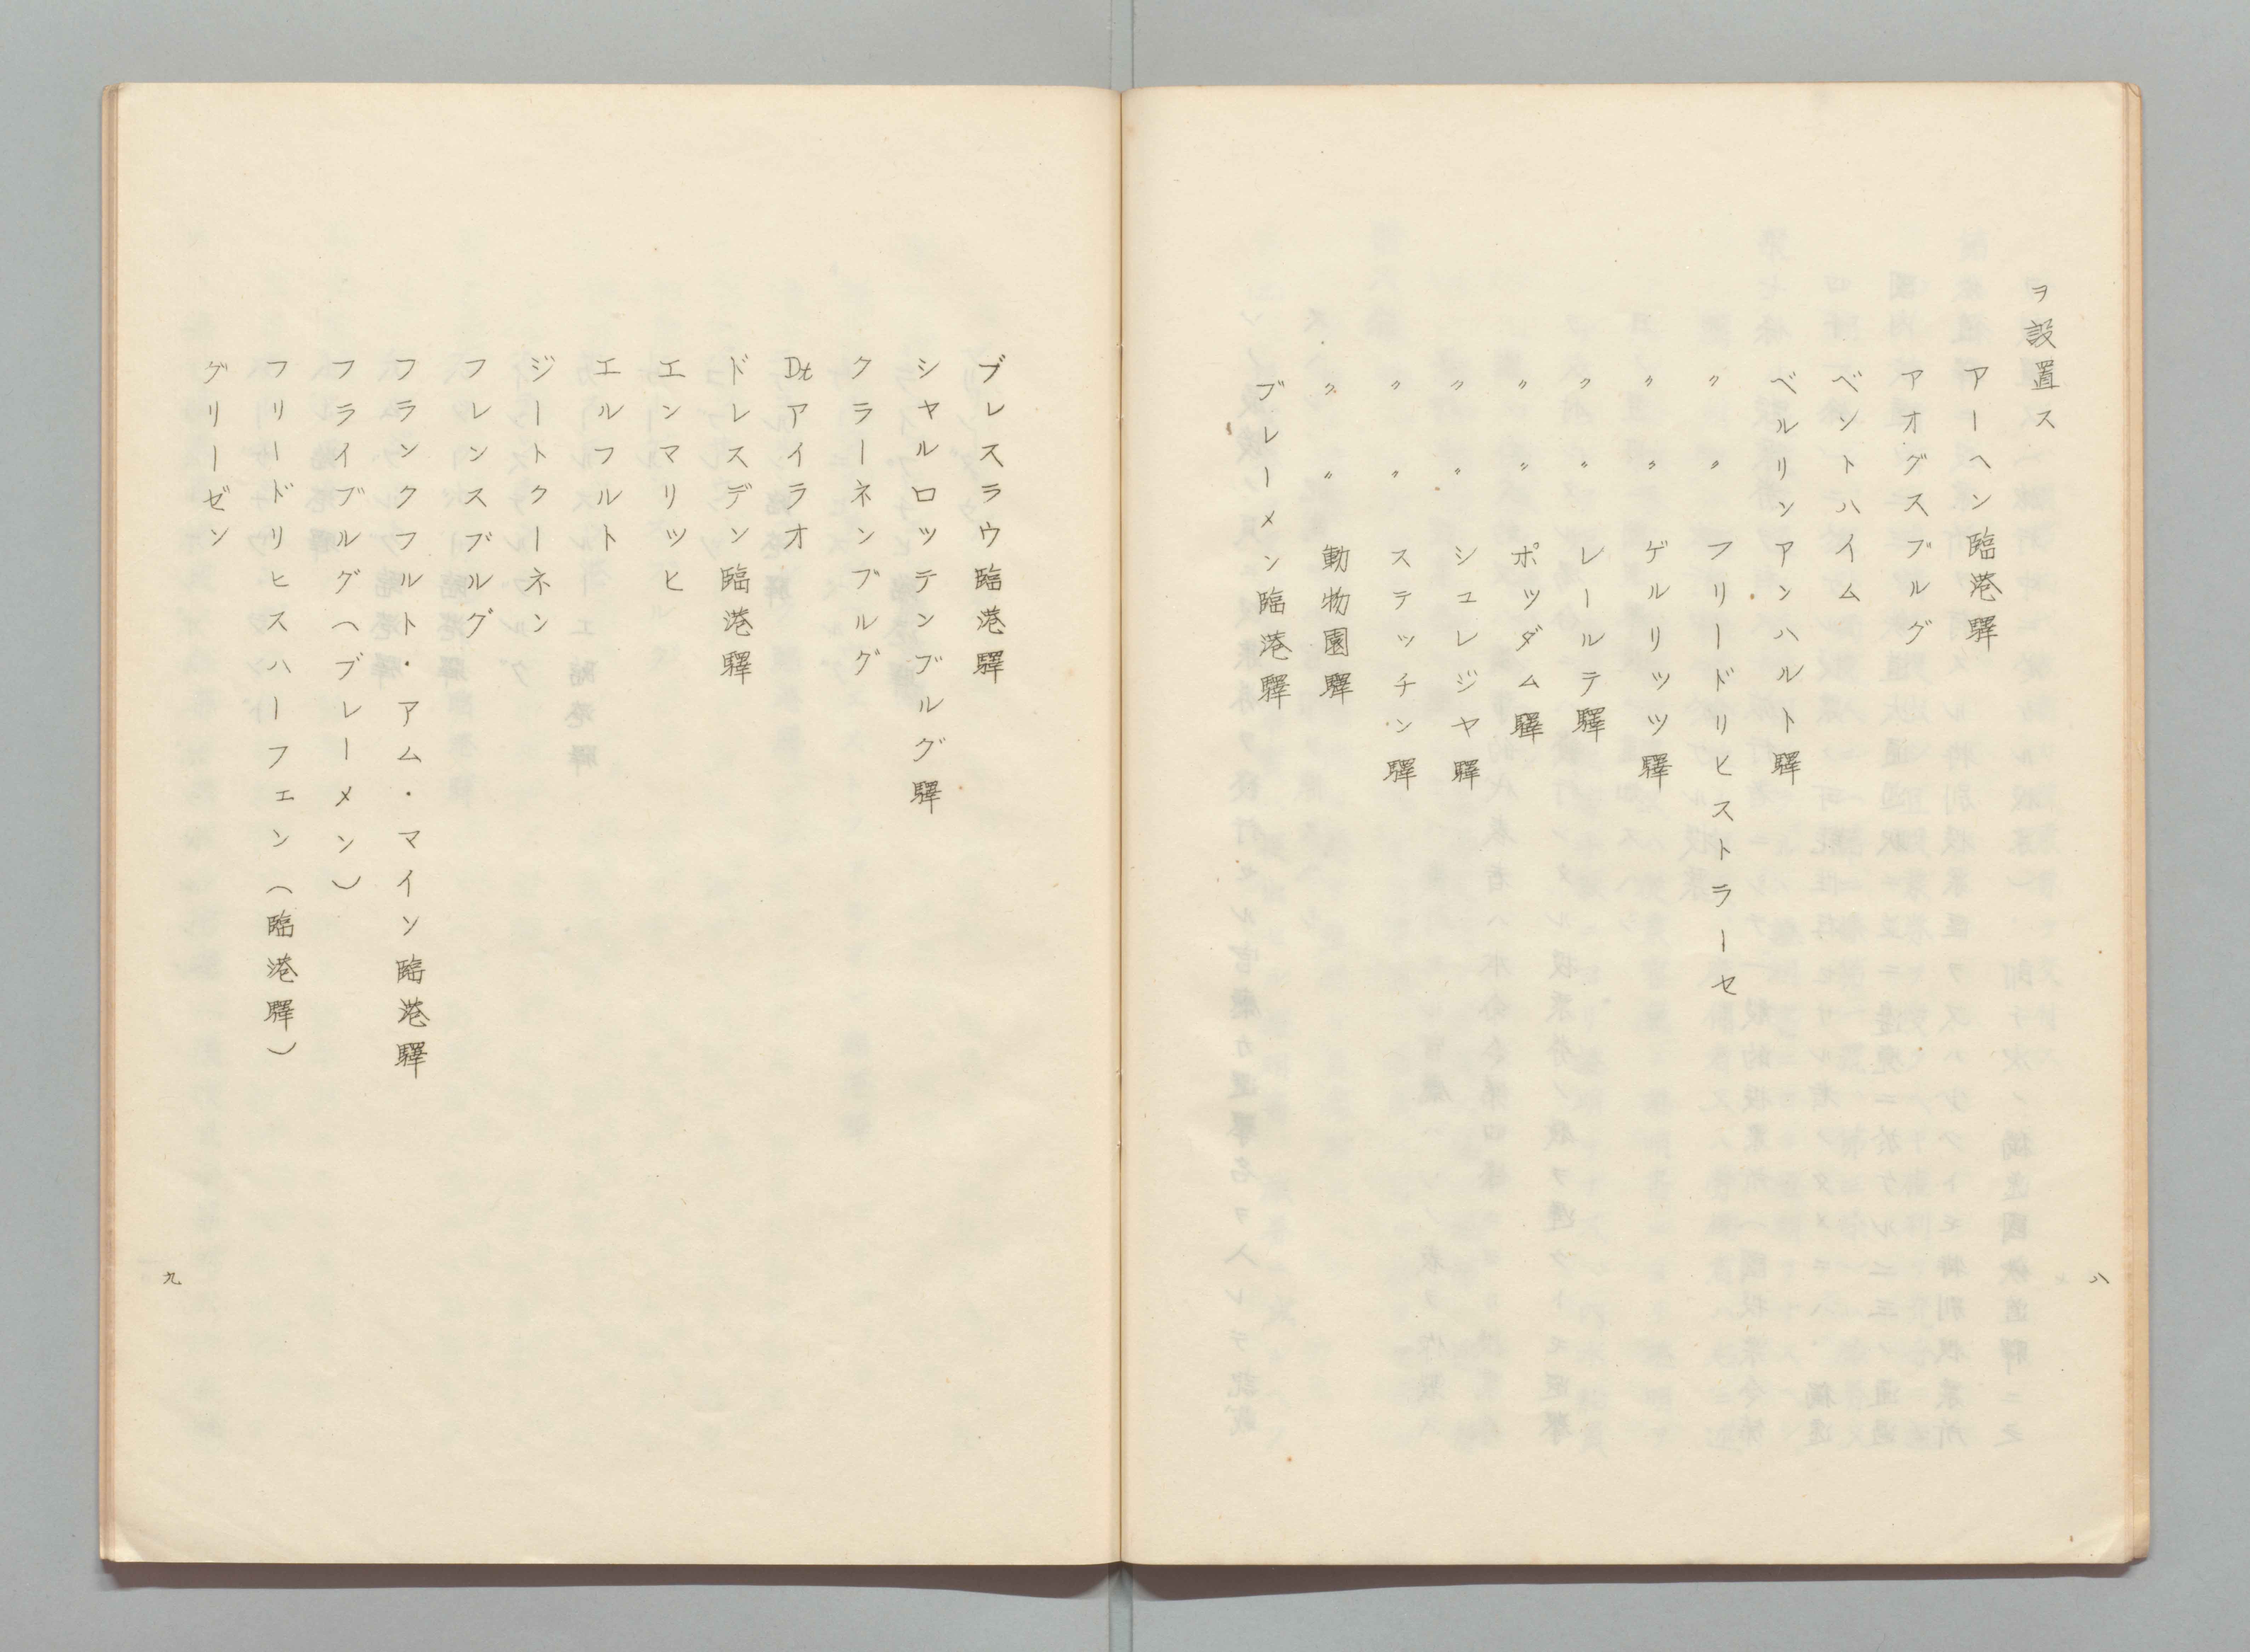 ヲ設置ス
アーヘン臨港驛
アオグスブルグ
ベントハイム
ベルリンアンハルト驛
〃 〃 フリードリヒストラーセ
〃 〃 ゲルリッツ驛
〃 〃 レールテ驛
〃 〃 ポツダム驛
〃 〃 シユレジヤ驛
〃 〃 ステッチン驛
〃 〃 動物園驛
ブレーメン臨港驛
八
ブレスラウ臨港驛
シャルロッテンブルグ驛
クラーネンブルグ
Dtアイラオ
ドレスデン臨港驛
エンマリッヒ
エルフルト
ジートクーネン
フレンスブルグ
フランクフルト・アム・マイン臨港驛
フライブルグ(ブレーメン)
フリードリヒスハーフェン(臨港驛)
グリーゼン
九